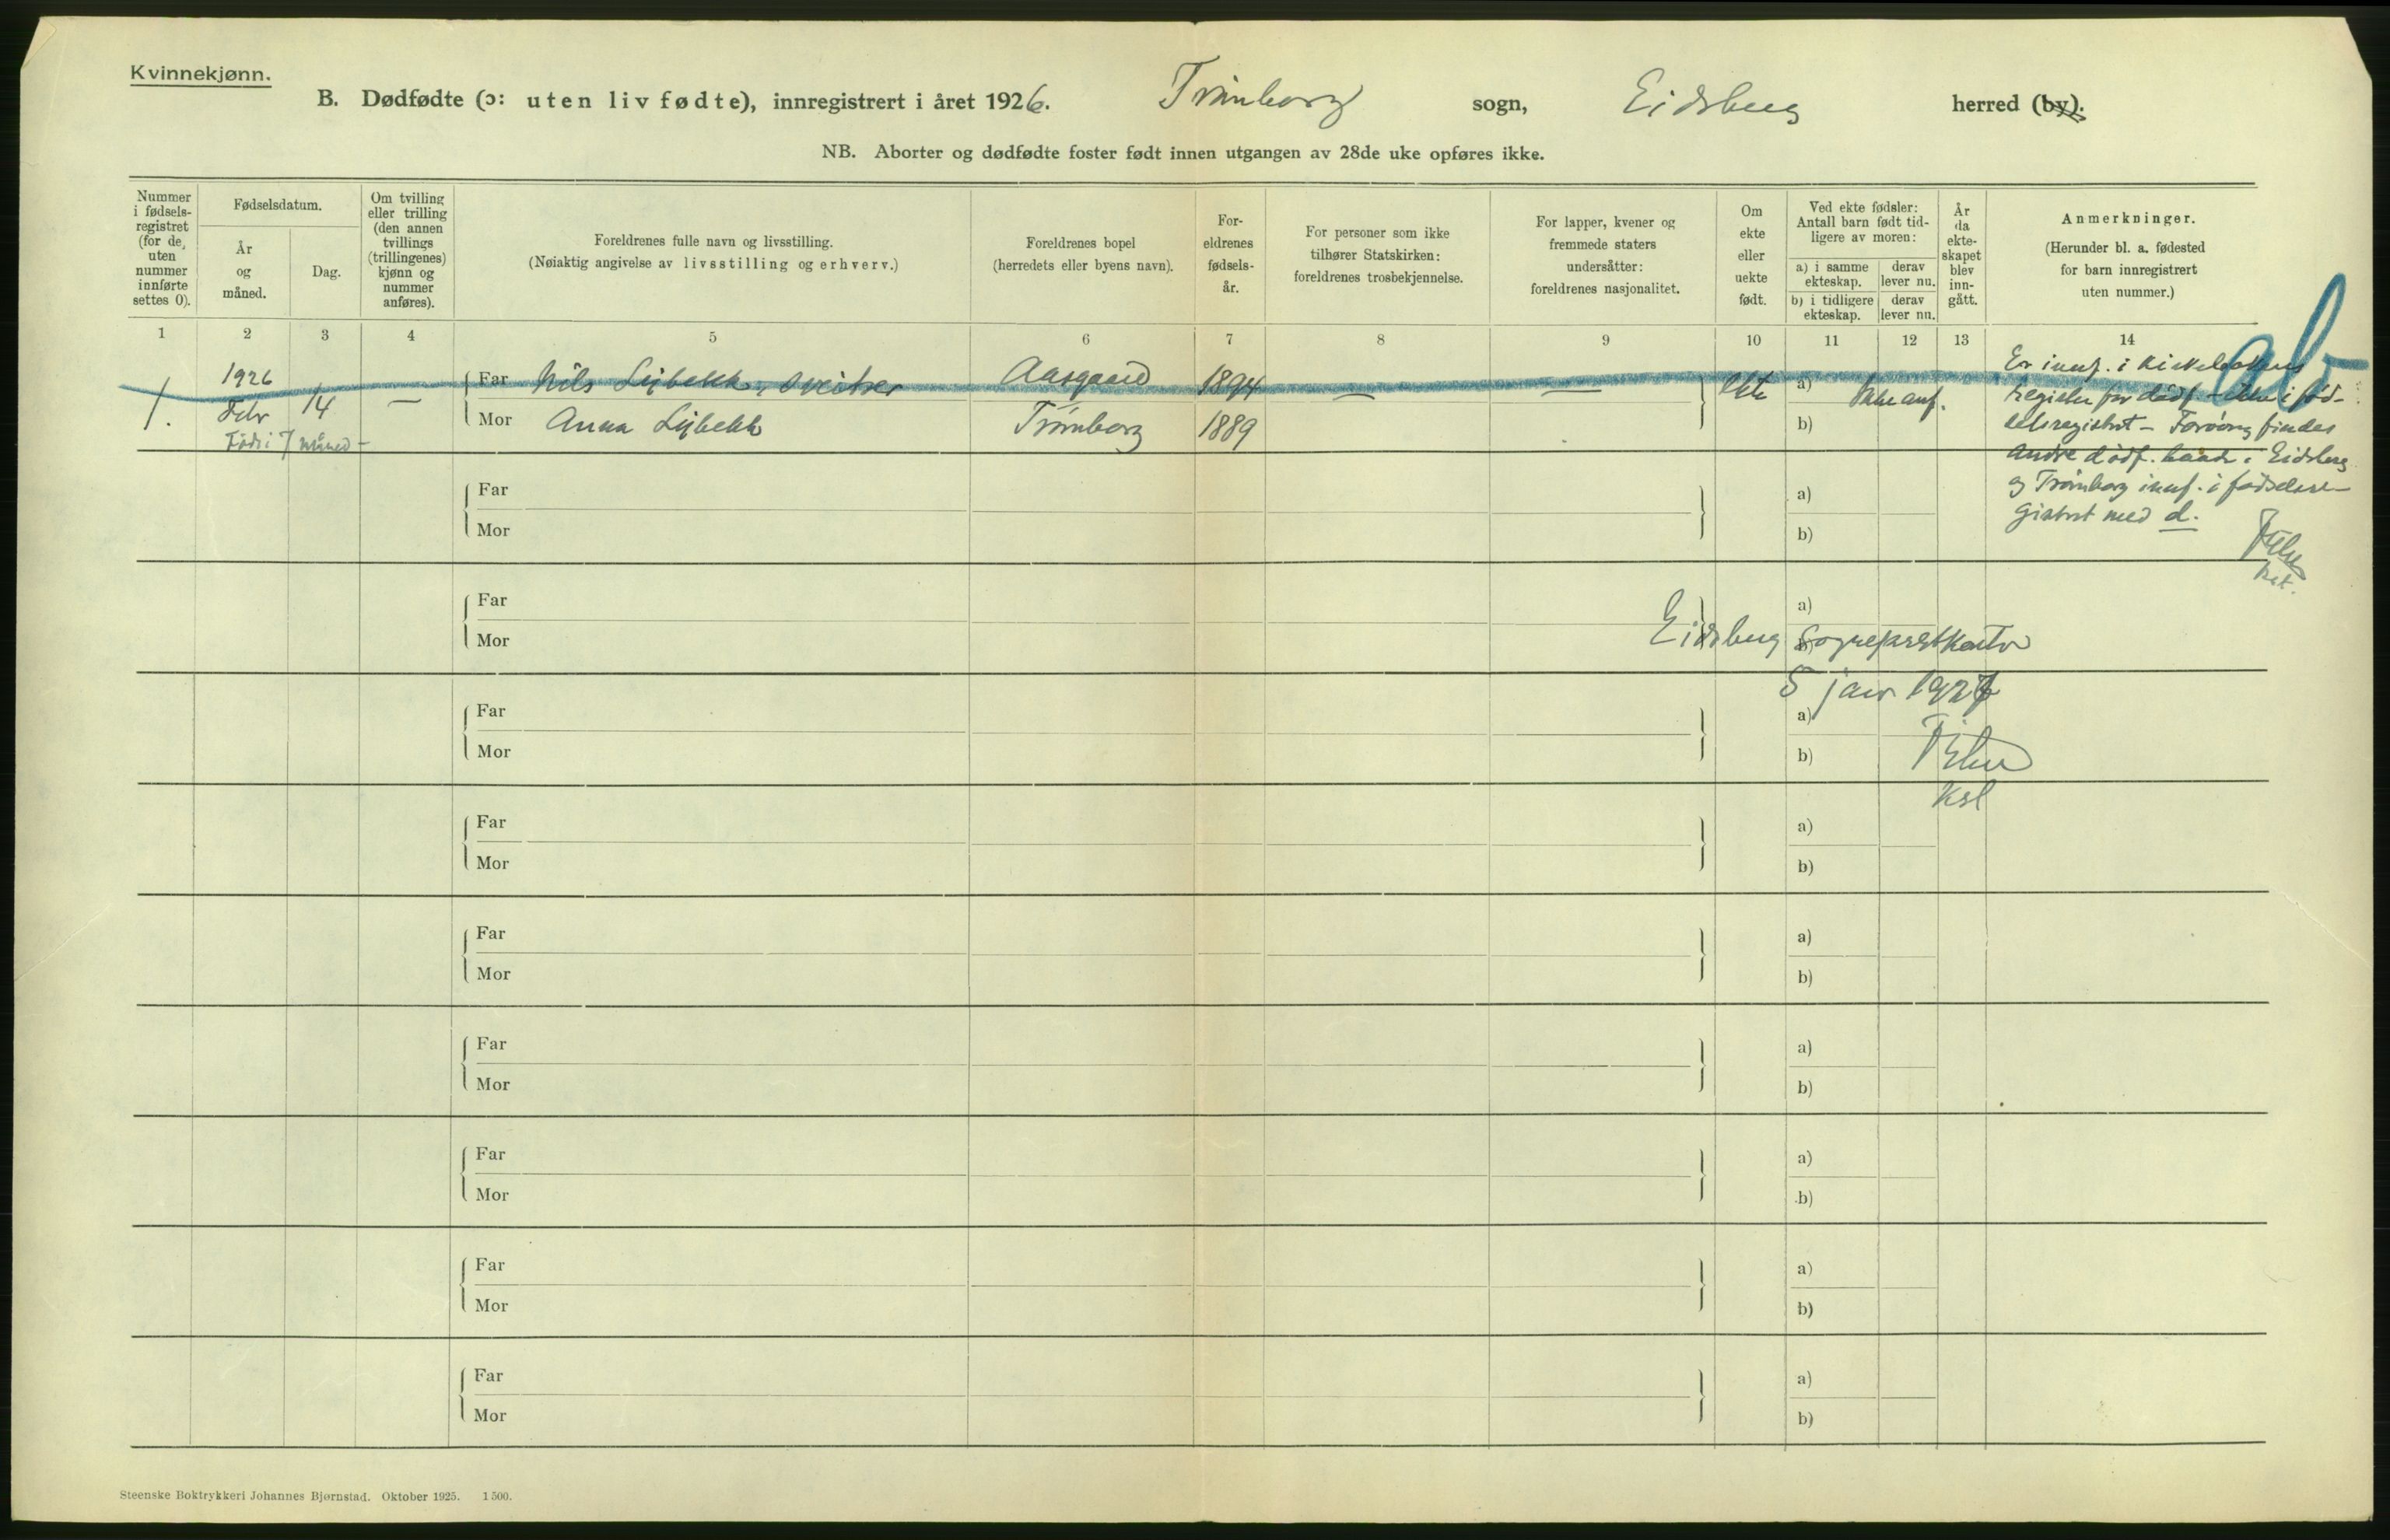 Kvinnekjønn.
B. Dødfødte (ɔ: uten liv fødte), innregistrert i året 1926. Trømborg sogn, Eidsberg herred (by).
NB. Aborter og dødfødte foster født innen utgangen av 28de uke opføres ikke.
Nummer
i fødsels-
registret
(for de
uten
nummer
innførte
settes 0).
Fødselsdatum.
År
og
måned.
Dag.
Om tvilling
eller trilling
(den annen
tvillings
(trillingenes)
kjønn og
nummer
anføres).
Foreldrenes fulle navn og livsstilling.
(Nøiaktig angivelse av livsstilling og erhverv.)
Foreldrenes bopel
(herredets eller byens navn).
For-
eldrenes
fødsels-
år.
For personer som ikke
tilhører Statskirken:
foreldrenes trosbekjennelse.
For lapper, kvener og
fremmede staters
undersåtter:
foreldrenes nasjonalitet.
Om
ekte
eller
uekte
født.
Ved ekte fødsler:
Antall barn født tid-
ligere av moren:
a) i samme
ekteskap.
derav
lever nu.
b) i tidligere
ekteskap.
derav
lever nu.
År
da
ekte-
skapet
blev
inn-
gått.
Anmerkninger.
(Herunder bl. a. fødested
for barn innregistrert
uten nummer.)
1 2 3 4 5 6 7 8 9 10 11 12 13 14
1. 1926
Febr 14 —
Født i 7 måned —
Far Nils Lybekk, sveitser Aasgaard 1894 — — Ekte a) Ikke anf.
Mor Anna Lybekk Trømborg 1889 b)
Er innf. i kirkebokens
register for dødf. - ikke i fød-
selsregistret - Forøvrig findes
andre dødf. baade i Eidsberg
og Trømborg innf. i fødselsre-
gistret med d.
ab
Far a)
Mor b)
Far a)
Mor b)
Eidsberg Sogneprestkontor
5 jan 1927
Far a)
Mor b)
Ksl
Far a)
Mor b)
Far a)
Mor b)
Far a)
Mor b)
Far a)
Mor b)
Far a)
Mor b)
Far a)
Mor b)
Steenske Boktrykkeri Johannes Bjørnstad. Oktober 1925. 1500.